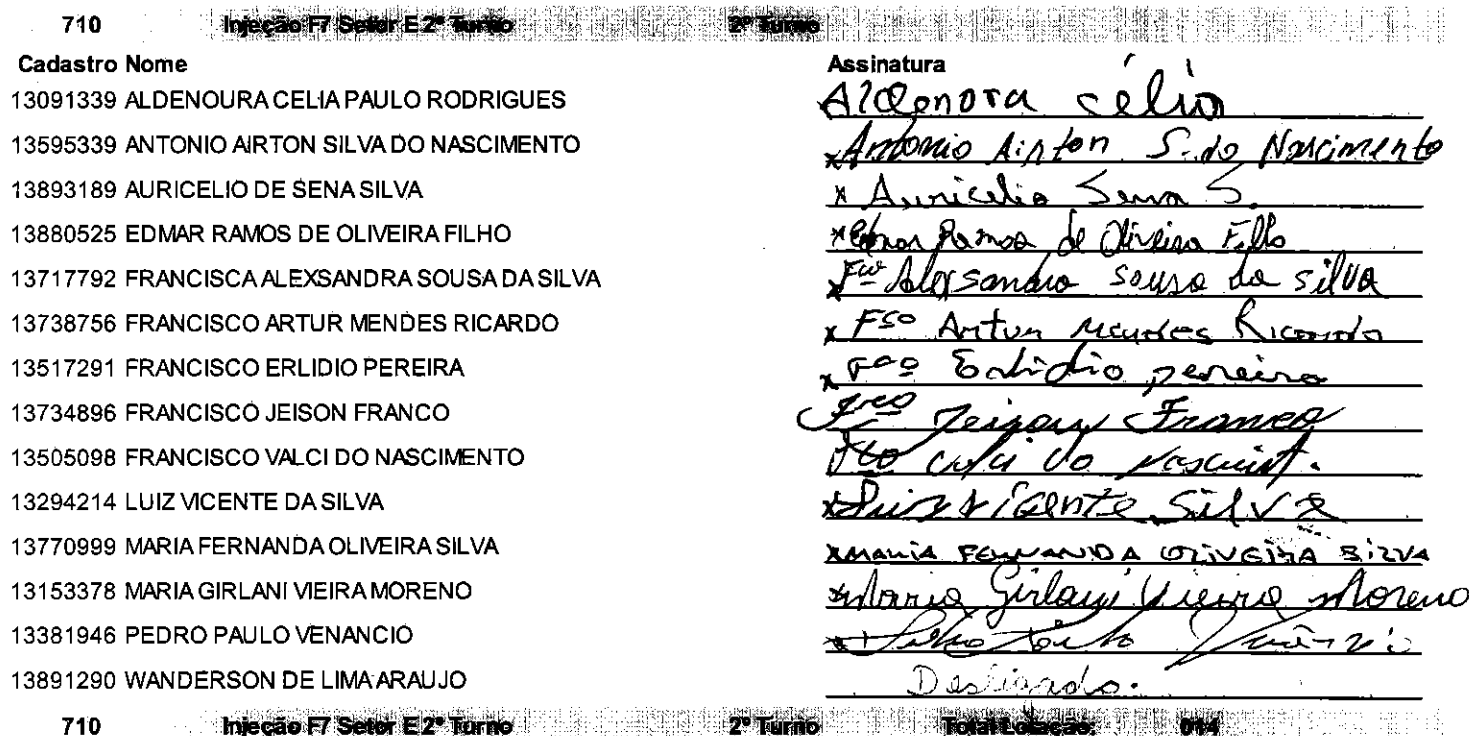 710 Injeção F7 Setor E 2° Turno 2° Turno
Cadastro Nome Assinatura
13091339 ALDENOURA CELIA PAULO RODRIGUES Aldenora célia
13595339 ANTONIO AIRTON SILVA DO NASCIMENTO x Antonio Airton S. do Nascimento
13893189 AURICELIO DE SENA SILVA x Auricelio Sena S.
13880525 EDMAR RAMOS DE OLIVEIRA FILHO x Edmar Ramos de Oliveira Filho
13717792 FRANCISCA ALEXSANDRA SOUSA DA SILVA x Alexsandra Sousa da Silva
13738756 FRANCISCO ARTUR MENDES RICARDO x Fso Artur Mendes Ricardo
13517291 FRANCISCO ERLIDIO PEREIRA x Fco Erlidio pereira
13734896 FRANCISCO JEISON FRANCO Fco Jeison Franco
13505098 FRANCISCO VALCI DO NASCIMENTO Fco Valci do
13294214 LUIZ VICENTE DA SILVA x Luiz Vicente Silva
13770999 MARIA FERNANDA OLIVEIRA SILVA x MARIA FERNANDA OLIVEIRA SILVA
13153378 MARIA GIRLANI VIEIRA MORENO x Maria Girlani Vieira Moreno
13381946 PEDRO PAULO VENANCIO x Pedro Paulo Venâncio
13891290 WANDERSON DE LIMA ARAUJO Desligado.
710 Injeção F7 Setor E 2° Turno 2° Turno Total Lotação: 014